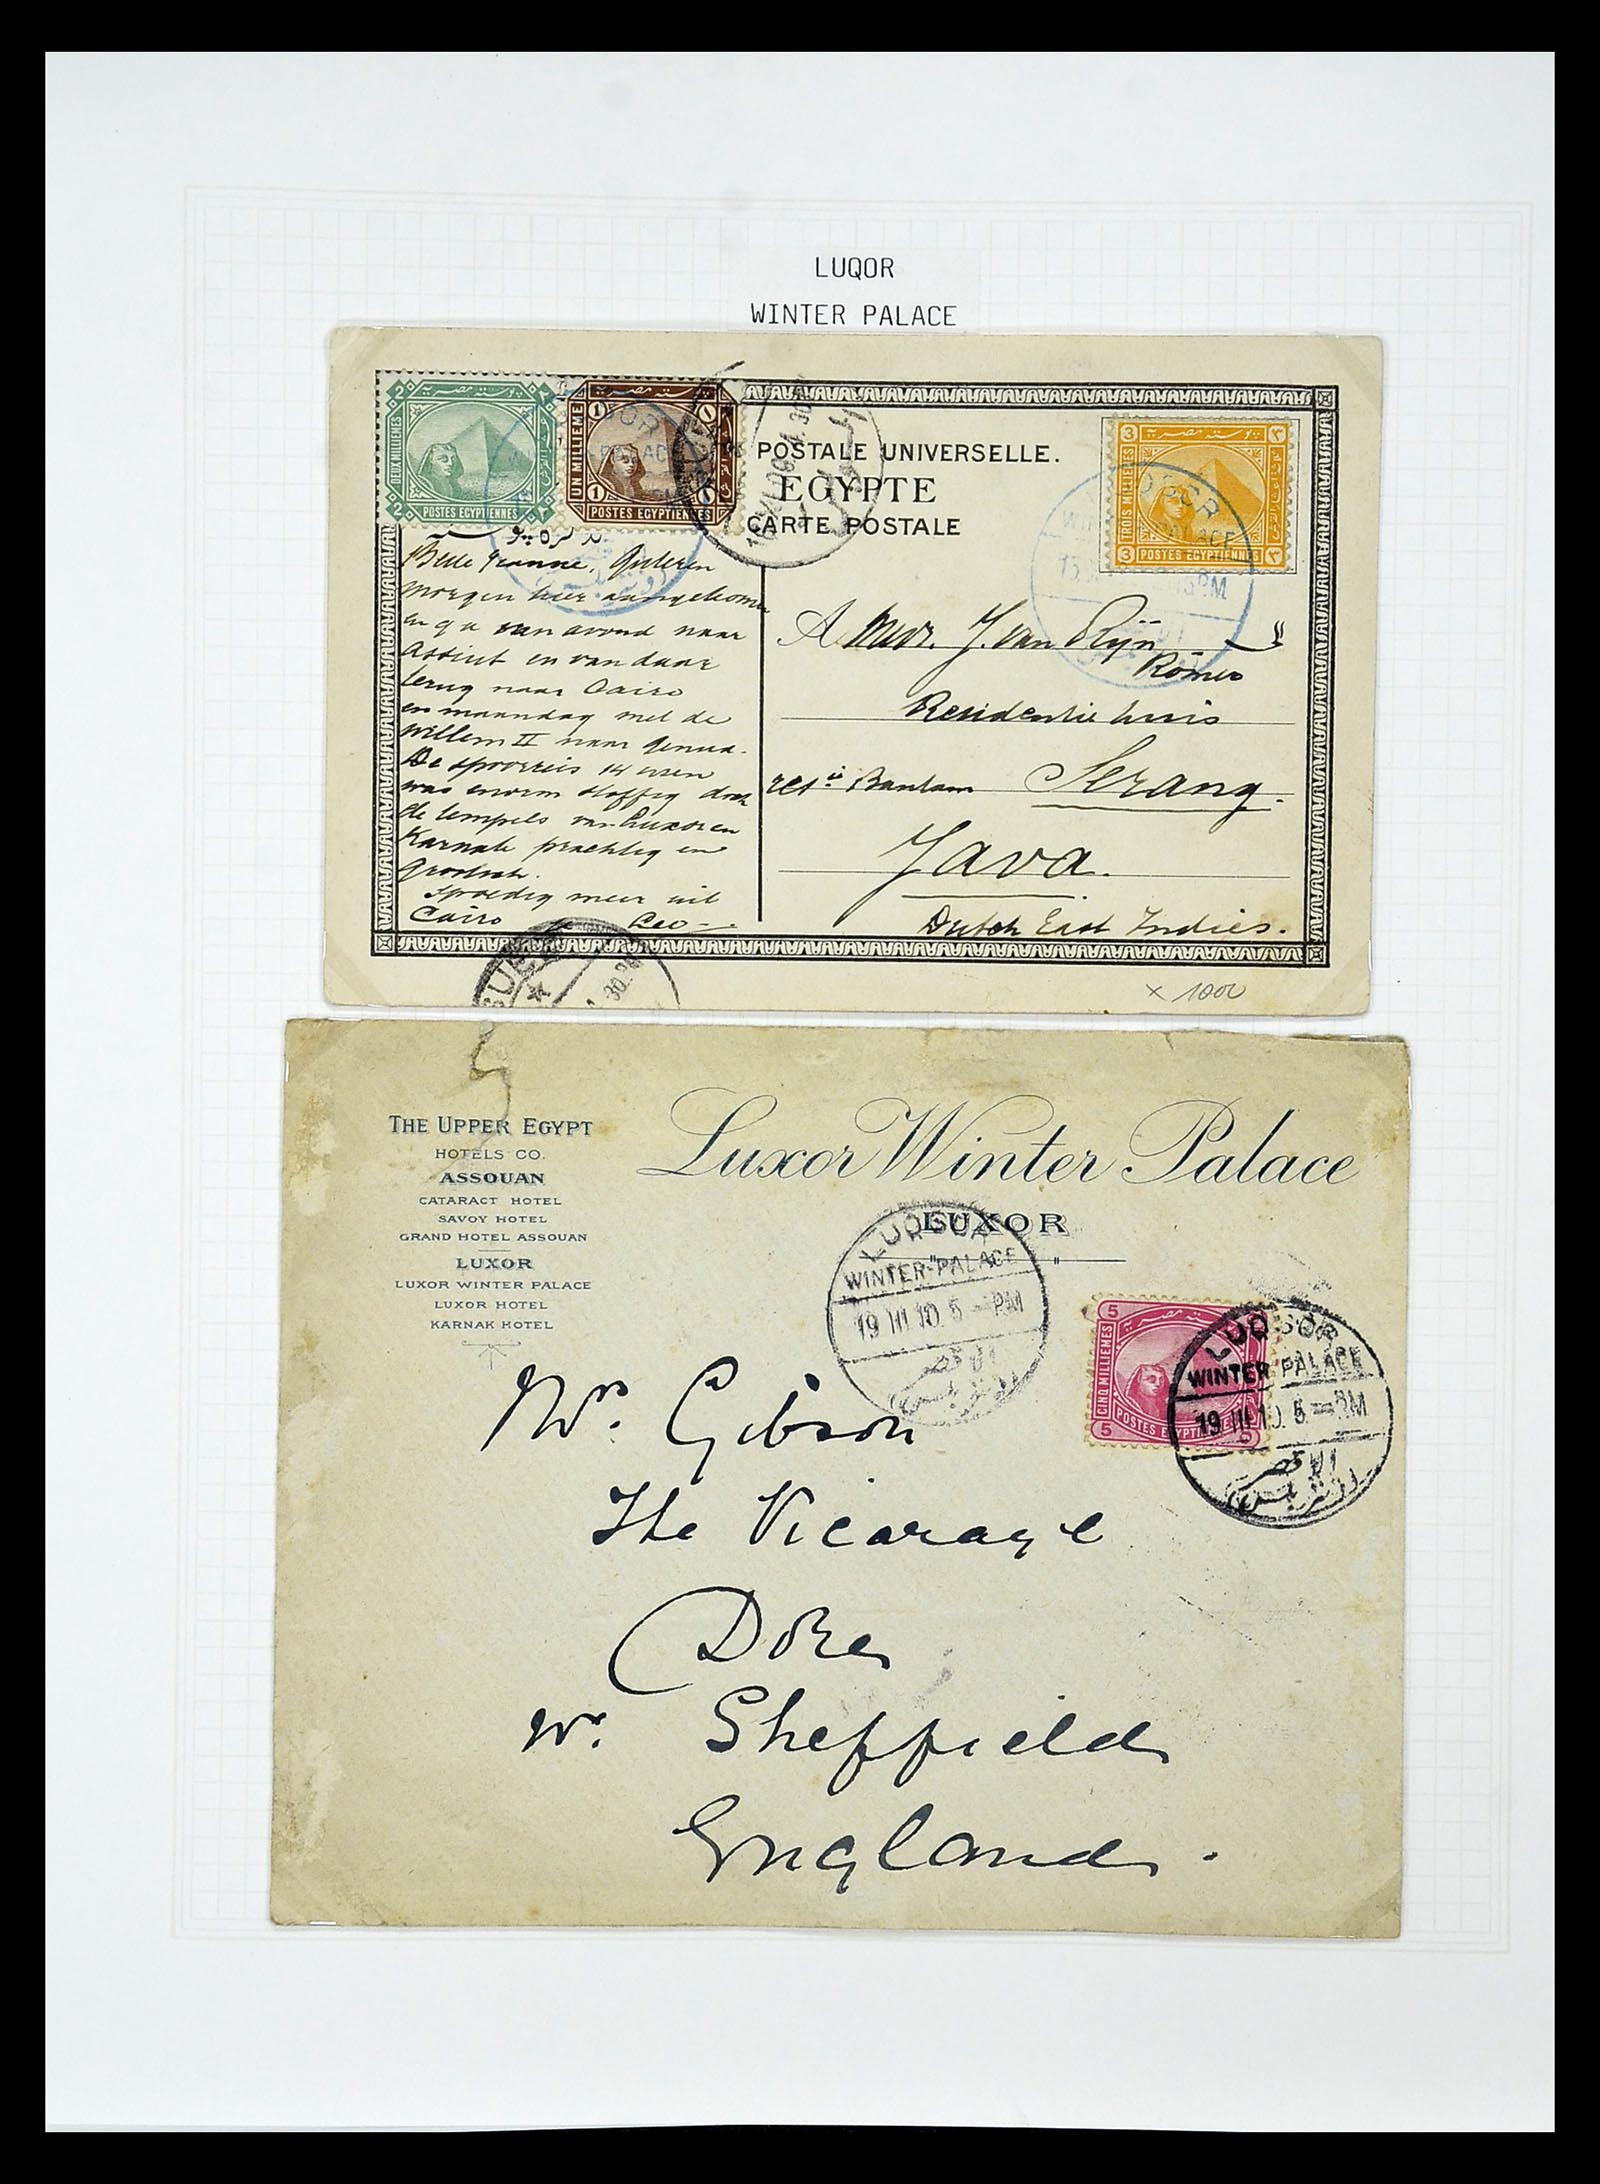 LUQOR
WINTER PALACE
2
DEUX MILLIEMES
POSTES EGYPTIENNES
2
1
UN MILLIEME
1
POSTES EGYPTIENNES
POSTALE UNIVERSELLE.
EGYPTE
CARTE POSTALE
3
TROIS MILLIEMES
3
POSTES EGYPTIENNES
Gisteren
morgen hier aangekomen
en ga van avond naar
Assiut en van daar
terug naar Cairo
en maandag met de
Willem II naar Genua.
De spoorreis 14 uren
was enorm stoffig doch
de tempels van Luxor en
Karnak prachtig en
grootsch.
Spoedig meer uit
Cairo Leo
A Mevr. J. van Rijn
Römer
Residentie huis
resie Bantam Serang.
Java.
Dutch East Indies.
SUEZ
x 1000
THE UPPER EGYPT
HOTELS CO.
ASSOUAN
CATARACT HOTEL
SAVOY HOTEL
GRAND HOTEL ASSOUAN
LUXOR
LUXOR WINTER PALACE
LUXOR HOTEL
KARNAK HOTEL
Luxor Winter Palace
LUXOR
LUQSOR
WINTER-PALACE
19 III 10. 5 - PM
الاقصر
5
CINQ MILLIEMES
5
POSTES EGYPTIENNES
LUQSOR
WINTER-PALACE
19 III 10. 5 - PM
الاقصر
Mrs. Gibson
The Vicarage
Dore
Nr. Sheffield
England.